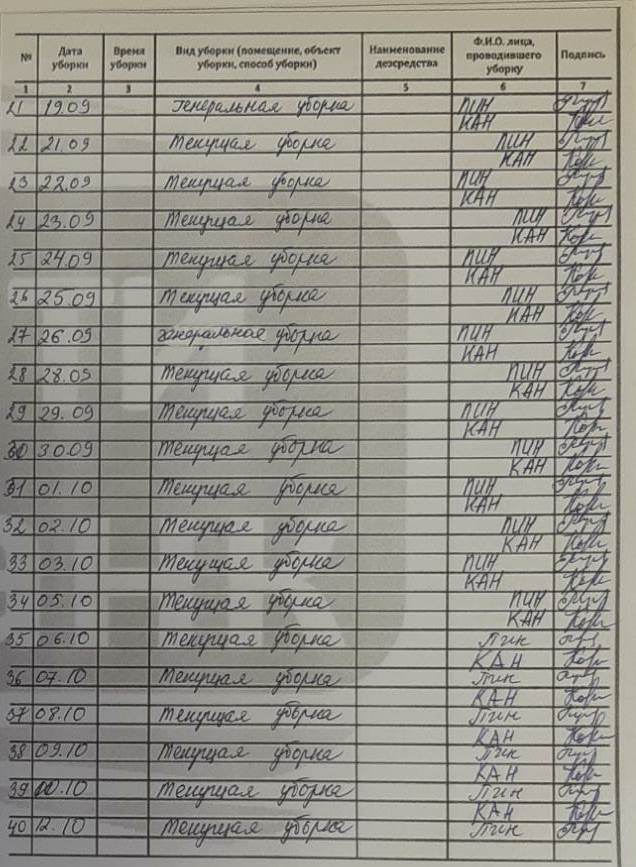 № Дата уборки Время уборки Вид уборки (помещение, объект уборки, способ уборки) Наименование дезсредства Ф.И.О. лица, проводившего уборку Подпись
1 2 3 4 5 6 7
21 19.09 Генеральная уборка ПИН
КАН
22 21.09 Текущая уборка ПИН
КАН
23 22.09 Текущая уборка ПИН
КАН
24 23.09 Текущая уборка ПИН
КАН
25 24.09 Текущая уборка ПИН
КАН
26 25.09 Текущая уборка ПИН
КАН
27 26.09 генеральная уборка ПИН
КАН
28 28.09 Текущая уборка ПИН
КАН
29 29.09 Текущая уборка ПИН
КАН
30 30.09 Текущая уборка ПИН
КАН
31 01.10 Текущая уборка ПИН
КАН
32 02.10 Текущая уборка ПИН
КАН
33 03.10 Текущая уборка ПИН
КАН
34 05.10 Текущая уборка ПИН
КАН
35 06.10 Текущая уборка Пин
КАН
36 07.10 Текущая уборка Пин
КАН
37 08.10 Текущая уборка Пин
КАН
38 09.10 Текущая уборка Пин
КАН
39 10.10 Текущая уборка Пин
КАН
40 12.10 Текущая уборка Пин